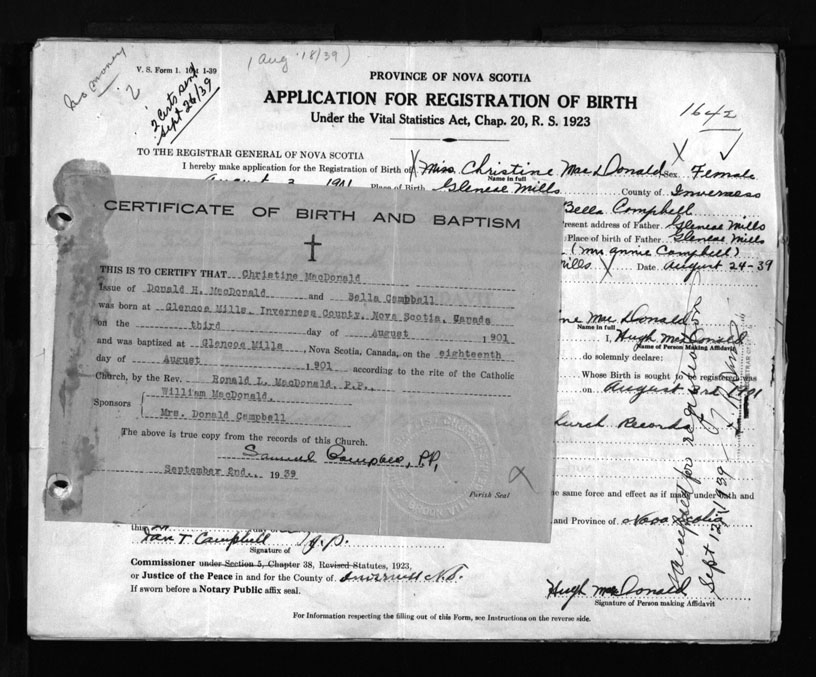 no money
2
V. S. Form 1. 10M 1-39
(Aug '18/39)
2 Certs sent
Sept 26/39
PROVINCE OF NOVA SCOTIA
APPLICATION FOR REGISTRATION OF BIRTH
Under the Vital Statistics Act, Chap. 20, R. S. 1923
1642
TO THE REGISTRAR GENERAL OF NOVA SCOTIA
I hereby make application for the Registration of Birth of Miss. Christine MacDonald Sex. Female
Name in full
August 3 1901 Place of Birth Glencoe Mills County of Inverness
Bella Campbell
Present address of Father. Glencoe Mills
Place of birth of Father. Glencoe Mills
(Mrs Annie Campbell)
Mills X Date August 24-39
CERTIFICATE OF BIRTH AND BAPTISM
THIS IS TO CERTIFY THAT Christine MacDonald
Issue of Donald H. MacDonald and Bella Campbell
was born at Glencoe Mills, Inverness County, Nova Scotia, Canada
on the third day of August 1901
and was baptized at Glencoe Mills, Nova Scotia, Canada, on the eighteenth
day of August 1901 according to the rite of the Catholic
Church, by the Rev. Ronald L. MacDonald, P.P.,
Sponsors { William MacDonald,
Mrs. Donald Campbell
The above is true copy from the records of this Church.
Samuel Campbell, P.P.,
September 2nd., 1939
Parish Seal
X
ne MacDonald
Name in full
I, Hugh MacDonald
Name of Person Making Affidavit
do solemnly declare:
Whose Birth is sought to be registered was
on August 3rd 1901
Church Records
he same force and effect as if made under oath and
and Province of Nova Scotia
Accepted for registration on
Sept 12, 1939
this day of
Ian T. Campbell J.P.
Signature of
Commissioner under Section 5, Chapter 38, Revised Statutes, 1923,
or Justice of the Peace in and for the County of Inverness N.S.
If sworn before a Notary Public affix seal.
Hugh MacDonald
Signature of Person making Affidavit
For Information respecting the filling out of this Form, see Instructions on the reverse side.